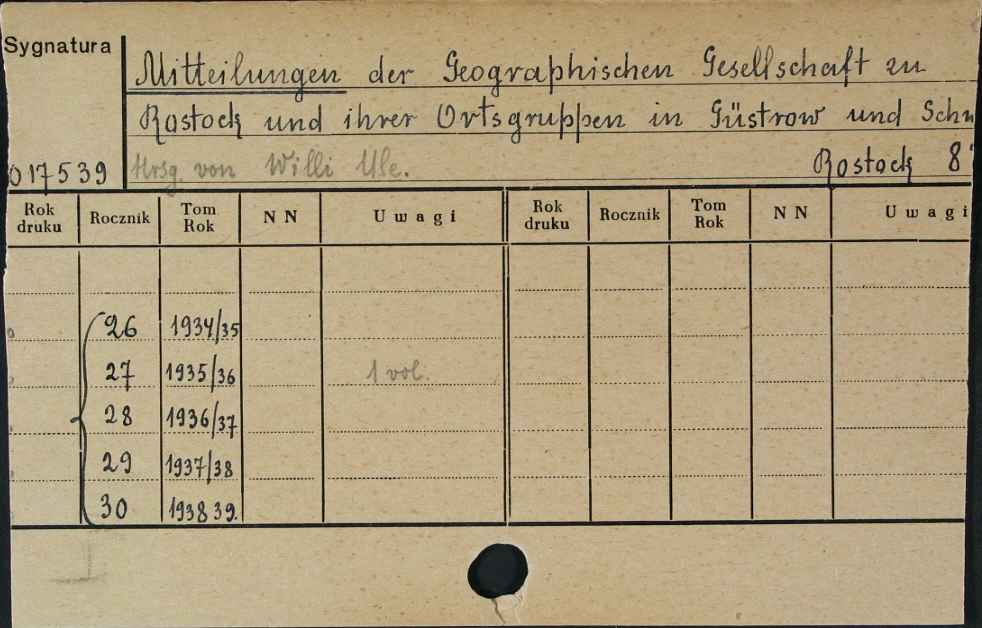 Sygnatura
Mitteilungen der Geographischen Gesellschaft zu
Rostock und ihrer Ortsgruppen in Güstrow und Schw
017539 Hrsg. von Willi Ule. Rostock 8°
Rok druku Rocznik Tom Rok N N Uwagi Rok druku Rocznik Tom Rok N N Uwagi
26 1934/35
27 1935/36 1 vol.
28 1936/37
29 1937/38
30 1938 39.